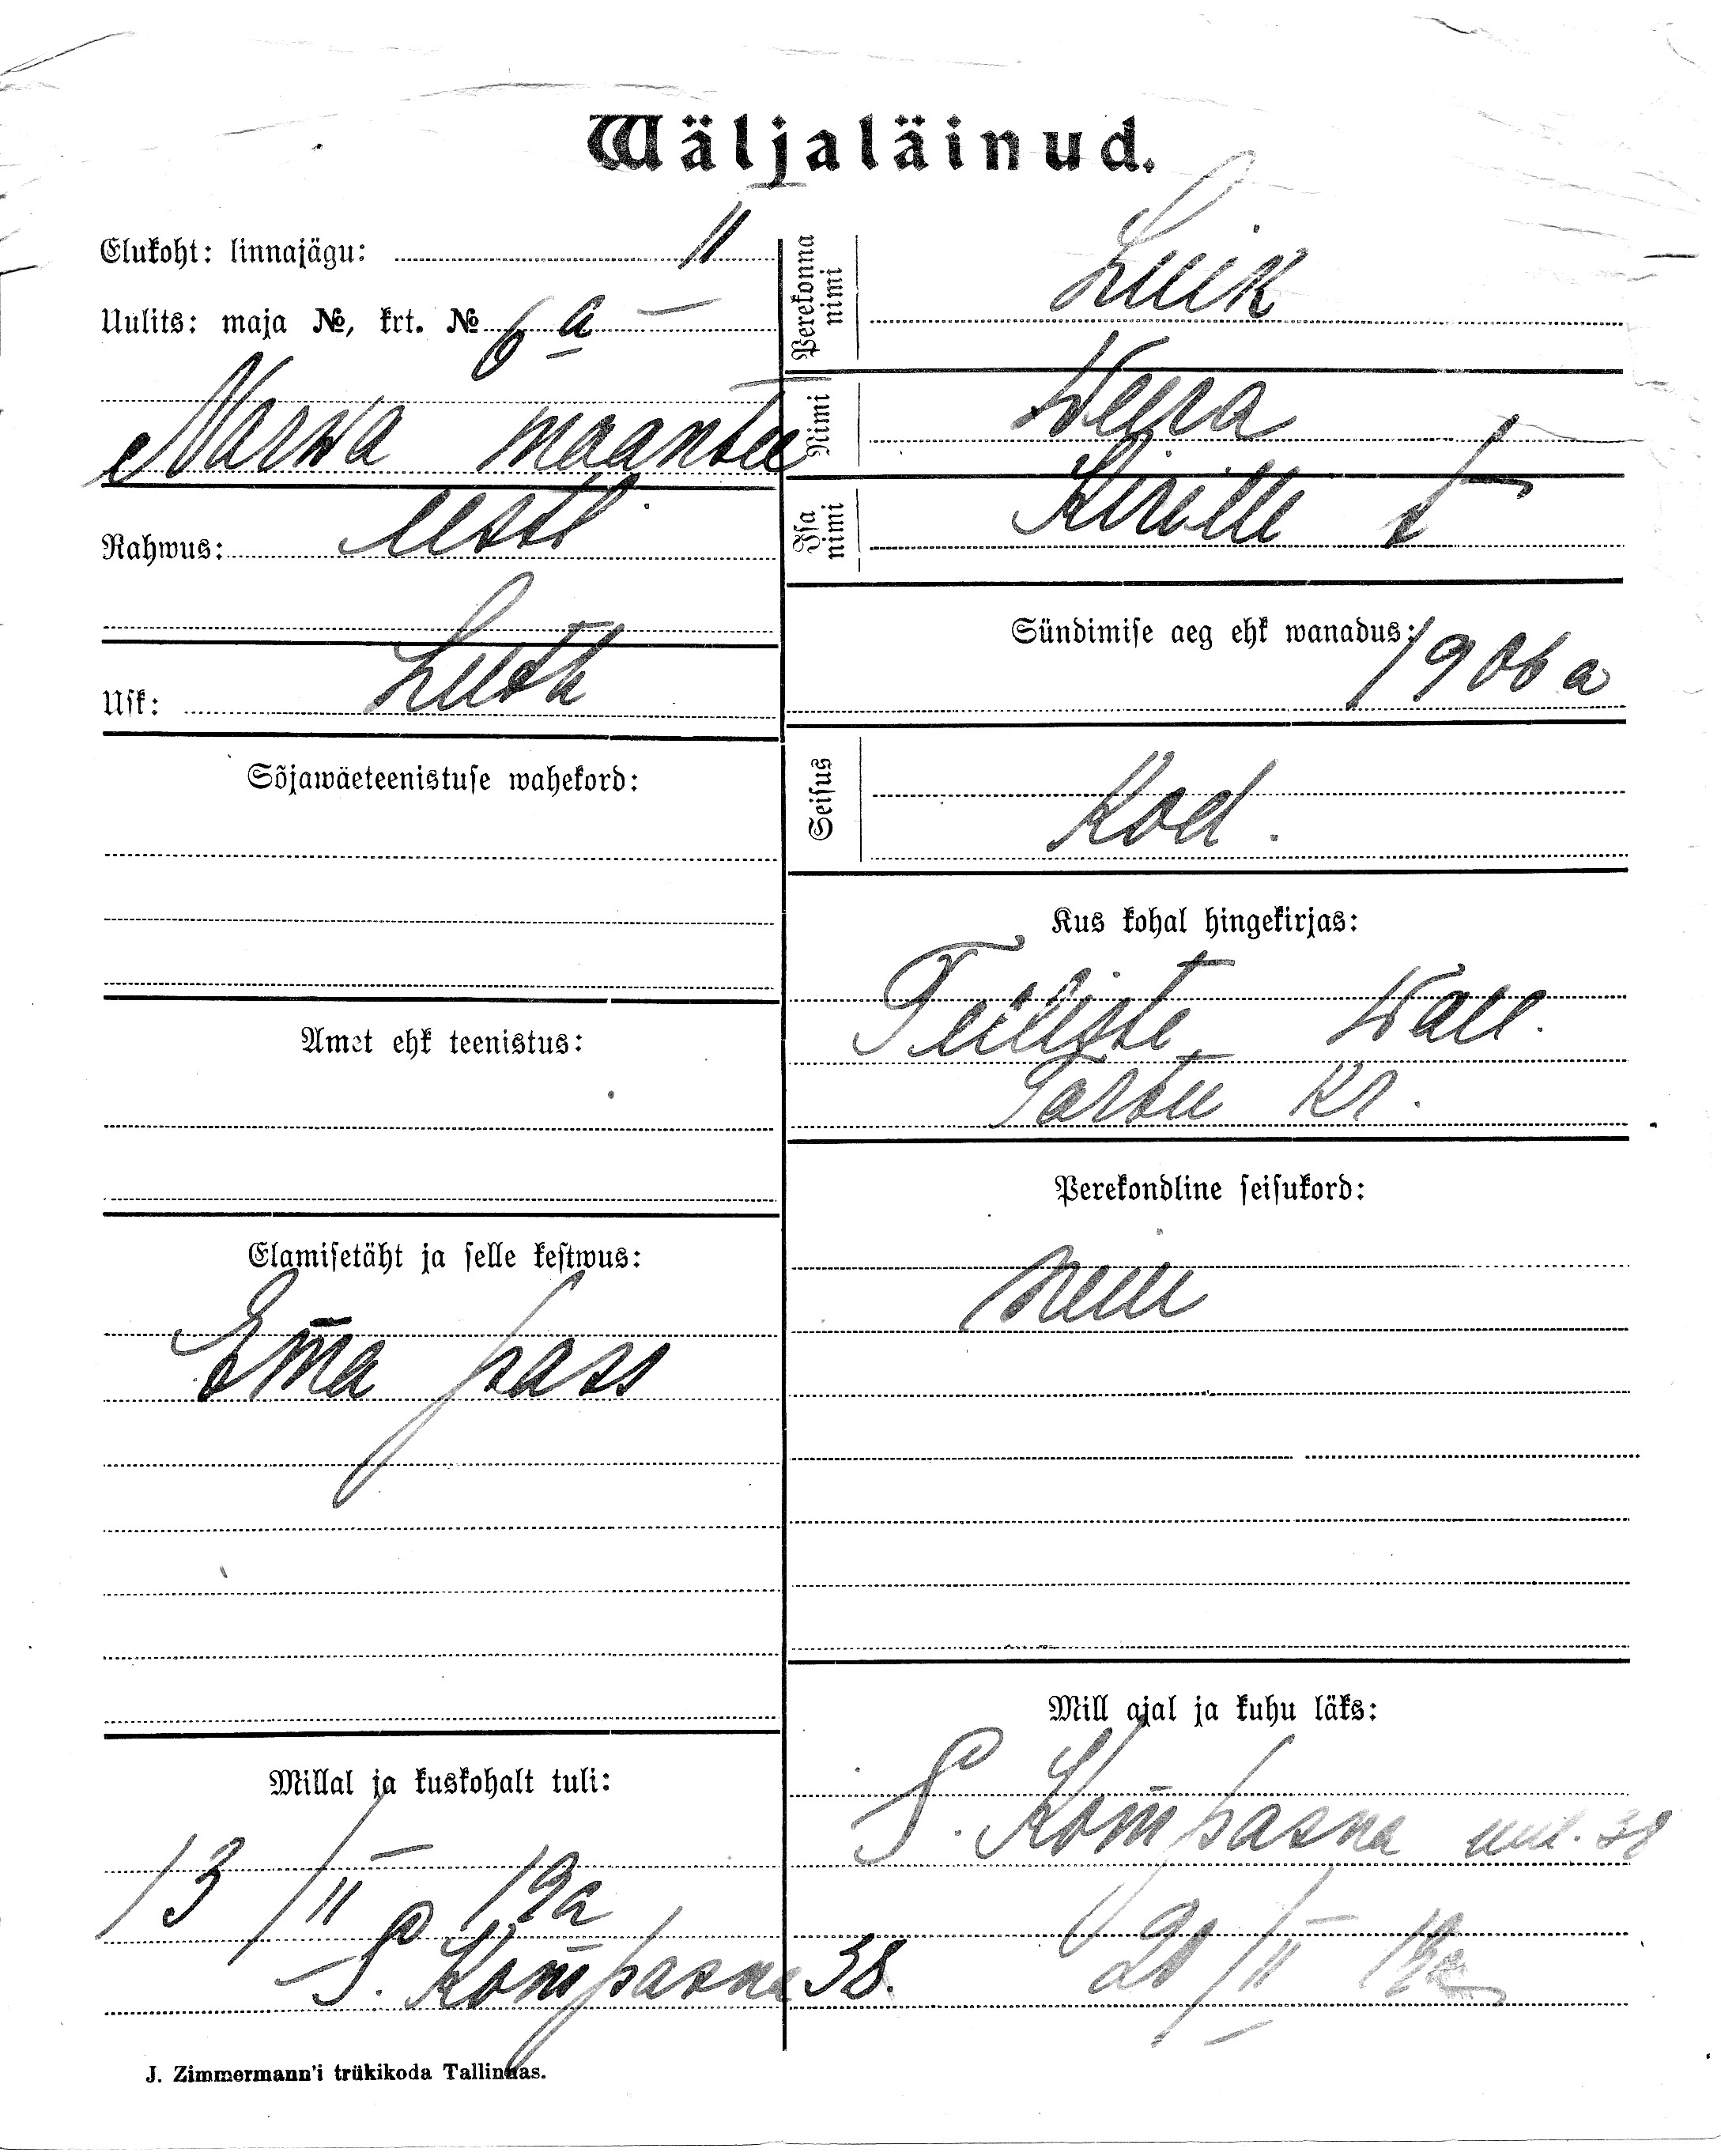 Wäljaläinud.
Elukoht: linnajägu: II
Uulits: maja №, krt. № 6 a
Narwa maantee
Rahwus: eesti
Usk: Luth
Sõjawäeteenistuse wahekord:
Amet ehk teenistus:
Elamisetäht ja selle kestwus:
Em̄a pass
Millal ja kuskohalt tuli:
13/II 19a
S. Kom̄pasna 38.
Perekonna nimi Luik
Nimi Weera
Isa nimi Kirille t
Sündimise aeg ehk wanadus: 1906 a
Seisus Kod.
Kus kohal hingekirjas:
Wall.
Tartu Kr.
Perekondline seisukord:
neiu
Mill ajal ja kuhu läks:
S. Kom̄pasna uul. 38
20/II 19a
J. Zimmermann'i trükikoda Tallinnas.